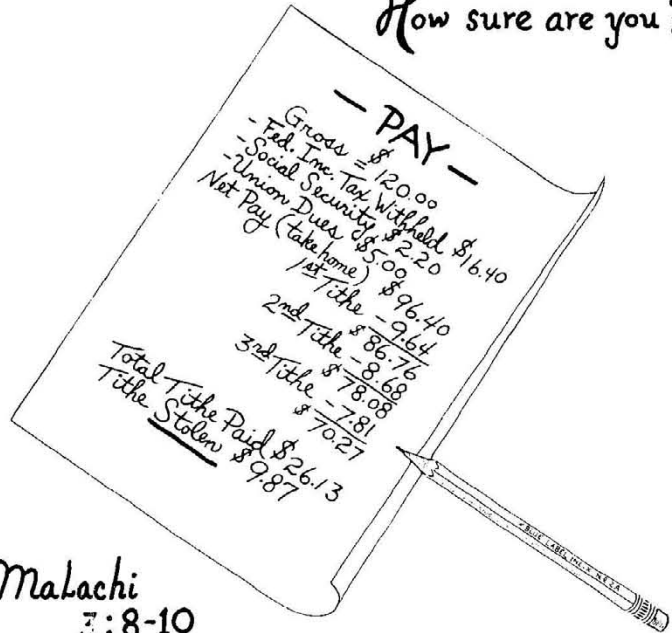 How sure are you?
— PAY —
Gross = $120.00
- Fed. Inc. Tax Withheld $16.40
- Social Security $2.20
- Union Dues $5.00
Net Pay (take home) $96.40
1st Tithe - 9.64
$86.76
2nd Tithe - 8.68
$78.08
3rd Tithe - 7.81
$70.27
Total Tithe Paid $26.13
Tithe Stolen $9.87
BLUE LABEL
Malachi
3:8-10